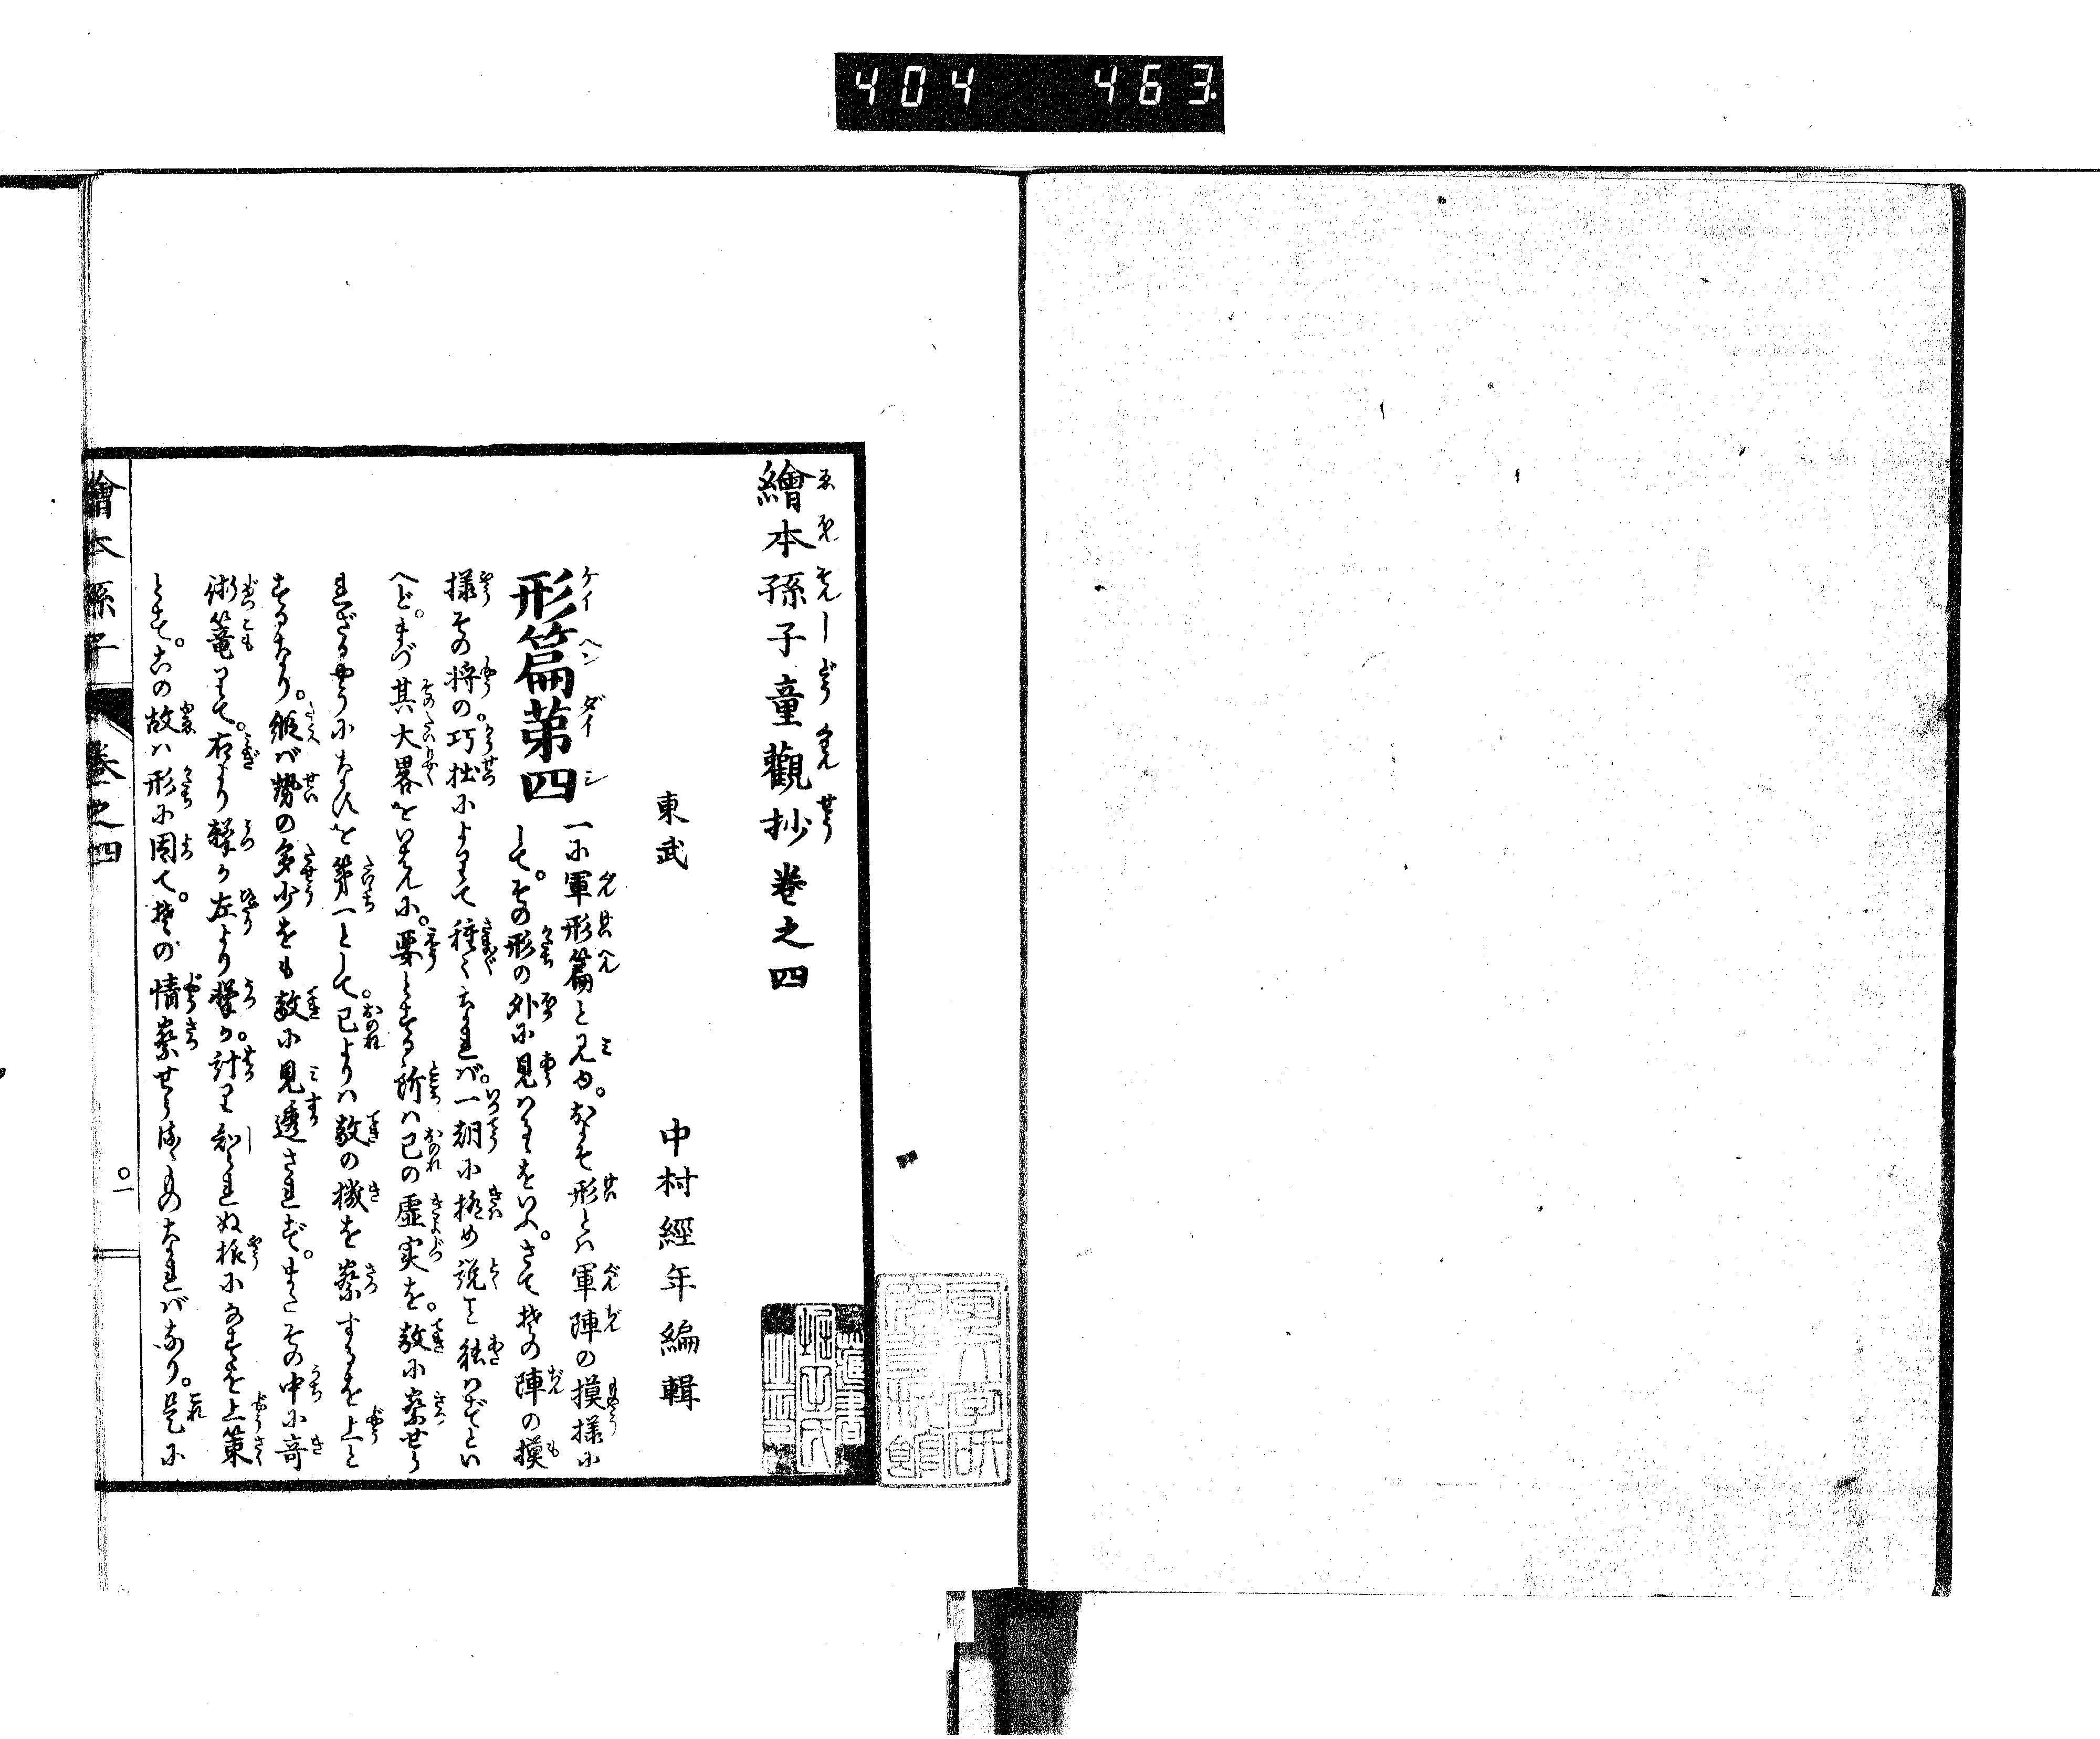 404 463
繪本孫子童觀抄卷之四
東武 中村經年編輯
形篇第四 一に軍形篇と見ゆ。およそ形とは軍陣の摸様に
して。その形の外に見はるゝをいふ。さて其の陣の摸
様その将の。巧拙によりて種々なれば。一朝に極め説こと能はずとい
へど。まづ其大畧をいはんに。要とする所は己の虚実を。敵に察せら
れざるやうになすを第一として。己よりは敵の機を察するを上と
するなり。縦ば勢の多少をも敵に見透されず。またその中に奇
術篭りて。右より撃か左より撃か。計り知れぬ様になすを上策
とす。この故は形に因て。其の情察せらるゝものなればなり。是に
繪本孫子 卷之四 〇一